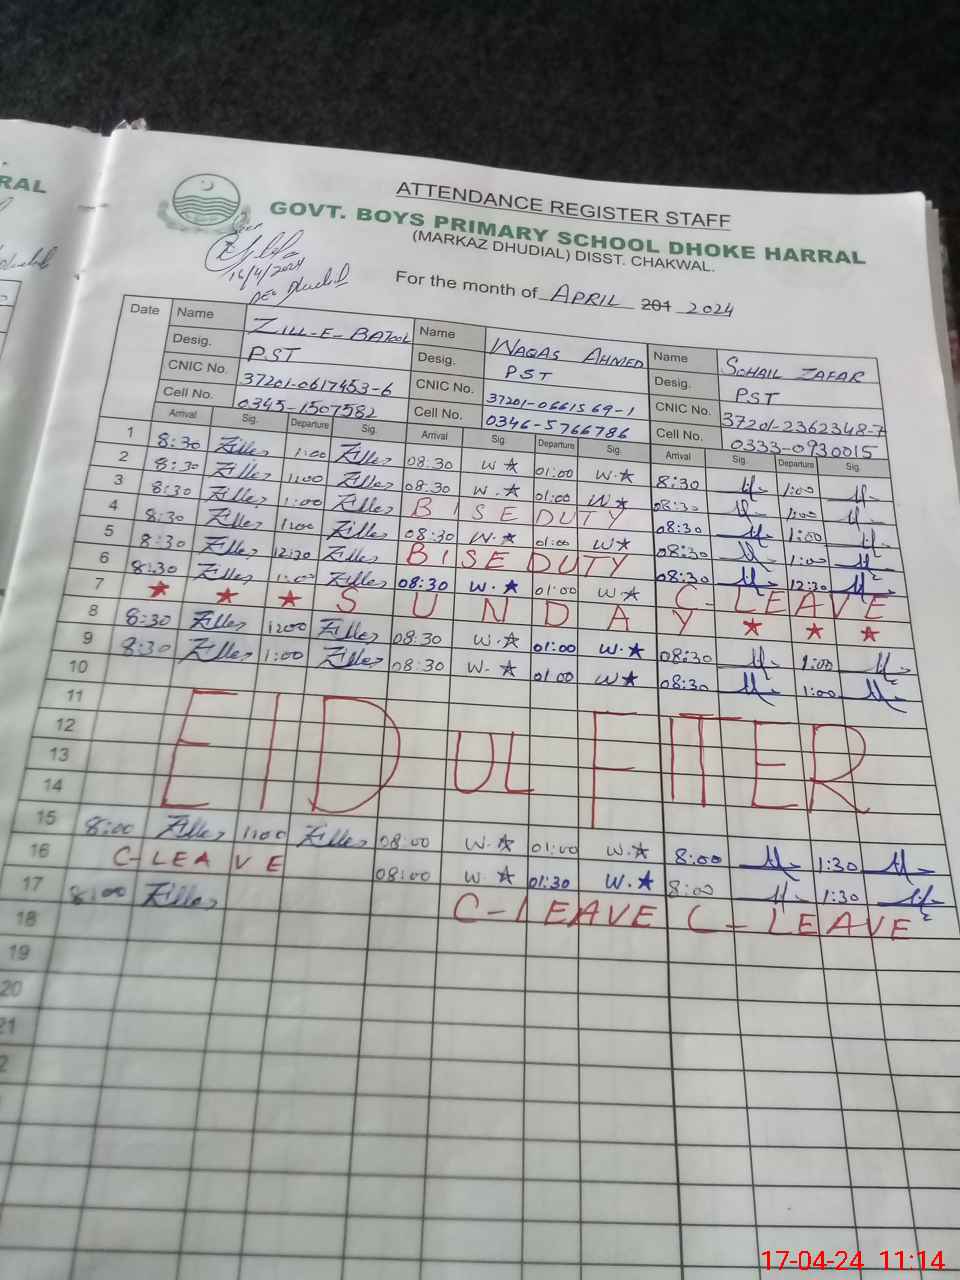 RAL
ATTENDANCE REGISTER STAFF
GOVT. BOYS PRIMARY SCHOOL DHOKE HARRAL
(MARKAZ DHUDIAL) DISST. CHAKWAL.
16/4/2024
For the month of APRIL 201 2024
Date Name ZILL-E-BATOOL Name WAQAS AHMED Name SOHAIL ZAFAR
Desig. PST Desig. PST Desig. PST
CNIC No. 37201-0617453-6 CNIC No. 37201-0661569-1 CNIC No. 37201-2362348-7
Cell No. 0345-1507582 Cell No. 0346-5766786 Cell No. 0333-0930015
Arrival Sig. Departure Sig. Arrival Sig. Departure Sig. Arrival Sig. Departure Sig.
1 8:30 1:00 08:30 W 01:00 W 8:30 1:00
2 8:30 1:00 08:30 W 01:00 W 08:30 1:00
3 8:30 1:00 BISE DUTY 08:30 1:00
4 8:30 1:00 08:30 W 01:00 W 08:30 1:00
5 8:30 12:30 BISE DUTY 08:30 12:30
6 8:30 1:00 08:30 W 01:00 W C-LEAVE
7 SUNDAY
8 8:30 1200 08:30 W 01:00 W 08:30 1:00
9 8:30 1:00 08:30 W 01:00 W 08:30 1:00
10
11
12 EID UL FITER
13
14
15 8:00 1:00 08:00 W 01:00 W 8:00 1:30
16 C-LEAVE 08:00 W 01:30 W 8:00 1:30
17 8:00 C-LEAVE C-LEAVE
18
19
20
21
2
17-04-24 11:14